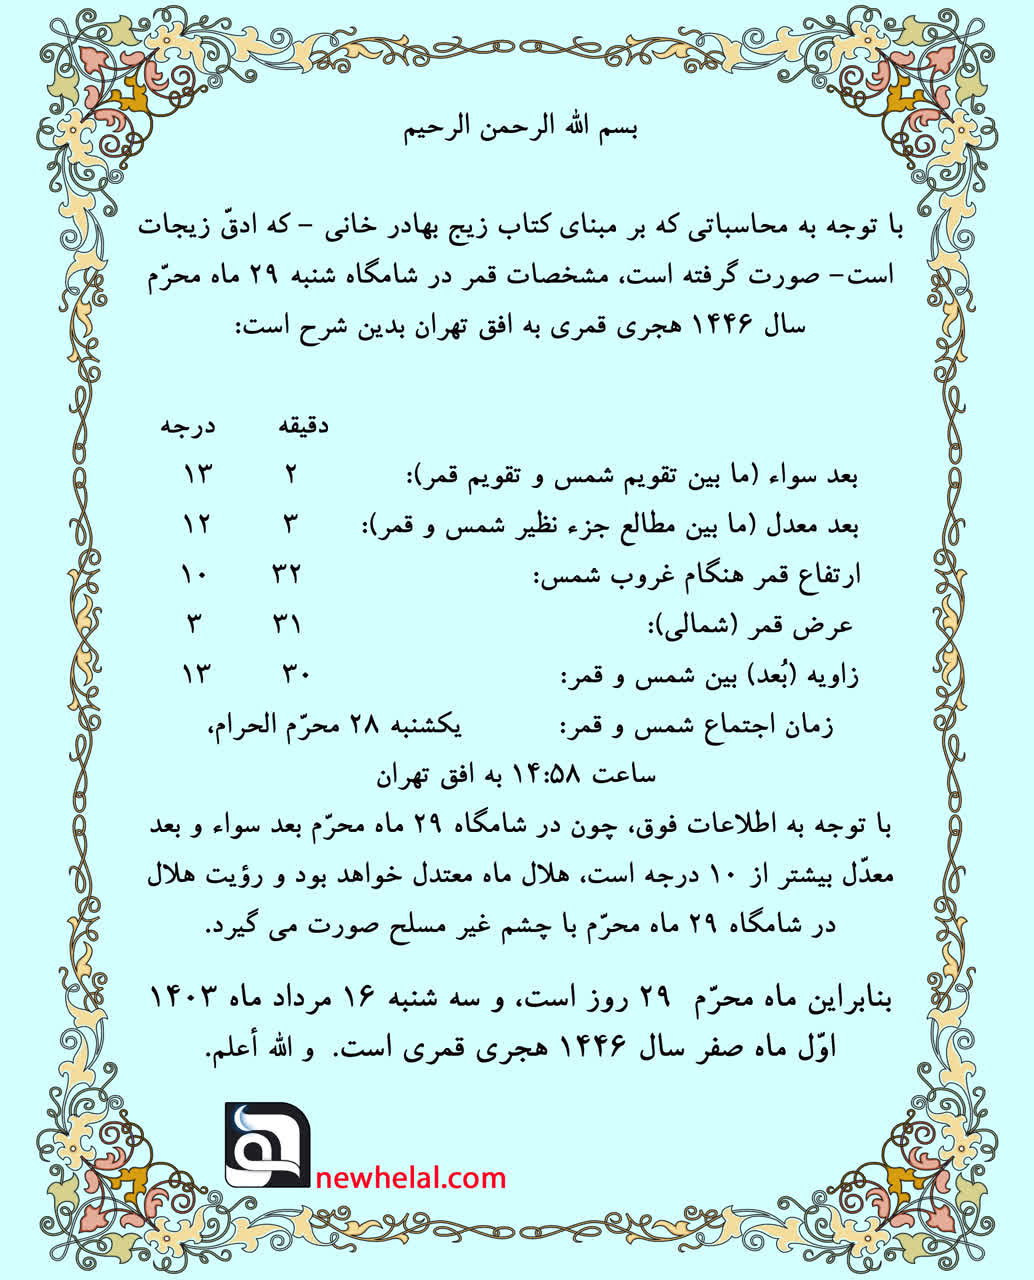 بسم الله الرحمن الرحیم
با توجه به محاسباتی که بر مبنای کتاب زیج بهادر خانی – که ادقّ زیجات
است– صورت گرفته است، مشخصات قمر در شامگاه شنبه ۲۹ ماه محرّم
سال ۱۴۴۶ هجری قمری به افق تهران بدین شرح است:
دقیقه درجه
بعد سواء (ما بین تقویم شمس و تقویم قمر): ۲ ۱۳
بعد معدل (ما بین مطالع جزء نظیر شمس و قمر): ۳ ۱۲
ارتفاع قمر هنگام غروب شمس: ۳۲ ۱۰
عرض قمر (شمالی): ۳۱ ۳
زاویه (بُعد) بین شمس و قمر: ۳۰ ۱۳
زمان اجتماع شمس و قمر: یکشنبه ۲۸ محرّم الحرام،
ساعت ۱۴:۵۸ به افق تهران
با توجه به اطلاعات فوق، چون در شامگاه ۲۹ ماه محرّم بعد سواء و بعد
معدّل بیشتر از ۱۰ درجه است، هلال ماه معتدل خواهد بود و رؤیت هلال
در شامگاه ۲۹ ماه محرّم با چشم غیر مسلح صورت می گیرد.
بنابراین ماه محرّم ۲۹ روز است، و سه شنبه ۱۶ مرداد ماه ۱۴۰۳
اوّل ماه صفر سال ۱۴۴۶ هجری قمری است. و الله أعلم.
newhelal.com